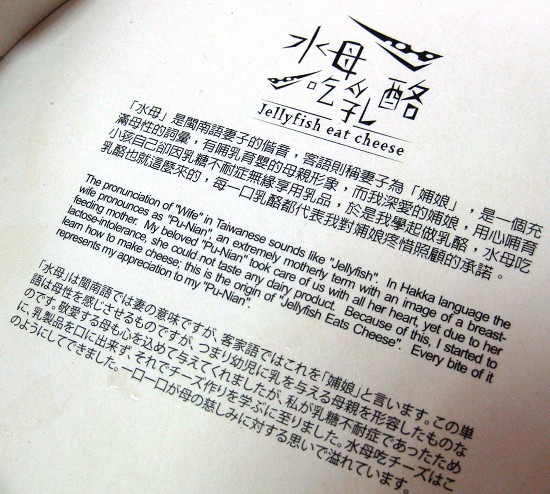 水母
吃乳酪
Jellyfish eat cheese
「水母」是閩南語妻子的偕音，客語則稱妻子為「嫞娘」，是一個充
滿母性的詞彙，有哺乳育嬰的母親形象，而我深愛的嫞娘，用心哺育
小孩自己卻因乳糖不耐症無緣享用乳品，於是我學起做乳酪，水母吃
乳酪也就這麼來的，每一口乳酪都代表我對嫞娘疼惜照顧的承諾。
The pronunciation of "Wife" in Taiwanese sounds like "Jellyfish". In Hakka language the
wife pronounces as "Pu-Nian", an extremely motherly term with an image of a breast-
feeding mother. My beloved "Pu-Nian" took care of us with all her heart, yet due to her
lactose-intolerance, she could not taste any dairy product. Because of this, I started to
learn how to make cheese; this is the origin of "Jellyfish Eats Cheese". Every bite of it
represents my appreciation to my "Pu-Nian".
「水母」は閩南語では妻の意味ですが、客家語ではこれを「嫞娘」と言います。この単
語は母性を感じさせるものですが、つまり幼児に乳を与える母親を形容したものな
のです。敬愛する母も心を込めて与えてくれましたが、私が乳糖不耐症であったため
に、乳製品を口に出来ず、それでチーズ作りを学ぶに至りました。水母吃チーズはこ
のようにしてできました。一口一口が母の慈しみに対する思いで溢れています。